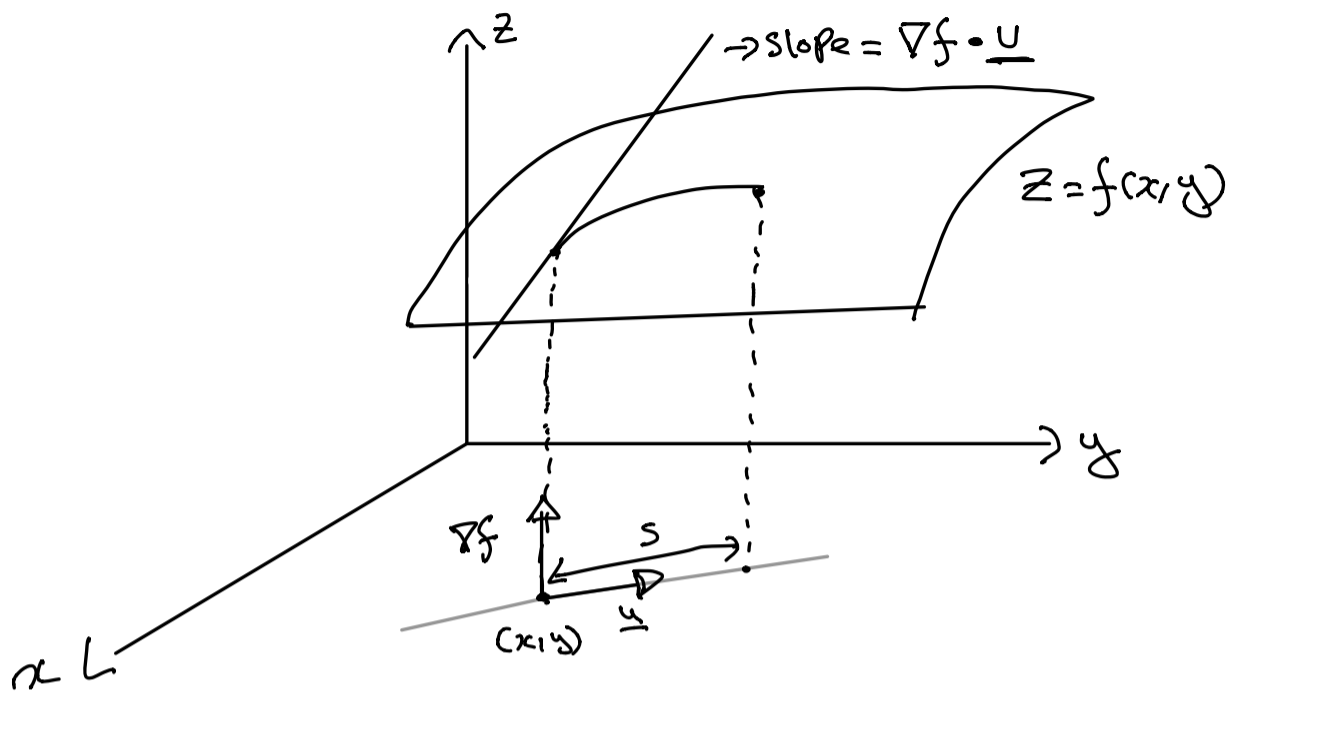 z
→slope = ∇f • u
z = f(x,y)
y
∇f
s
u
(x,y)
x